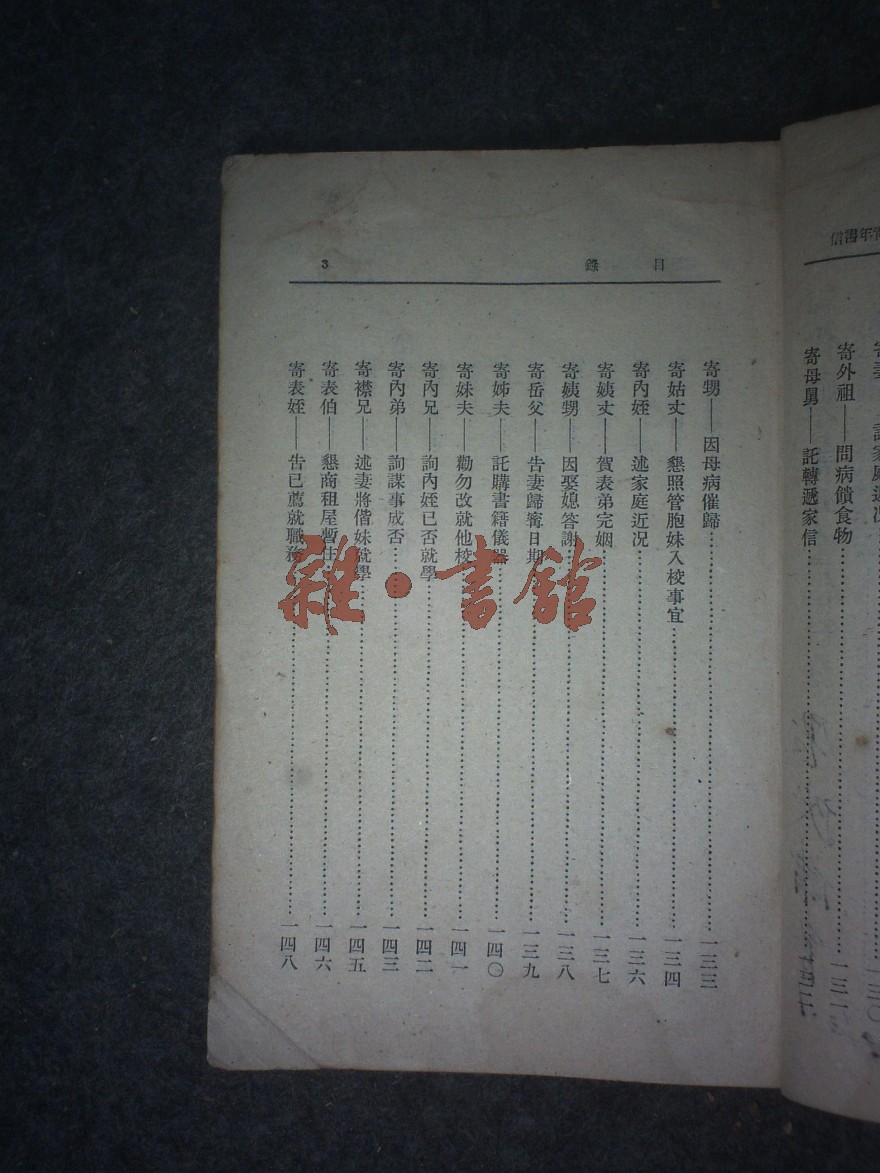 寄外祖——問病饋食物……一三一
寄母舅——託轉遞家信
目錄 3
寄甥——因母病催歸……一三三
寄姑丈——懇照管胞妹入校事宜……一三四
寄內姪——述家庭近况……一三六
寄姨丈——賀表弟完姻……一三七
寄姨甥——因娶媳答謝……一三八
寄岳父——告妻歸寗日期……一三九
寄姊夫——託購書籍儀器……一四〇
寄妹夫——勸勿改就他校……一四一
寄內兄——詢內姪已否就學……一四二
寄內弟——詢謀事成否……一四三
寄襟兄——述妻將偕妹就學……一四五
寄表伯——懇商租屋暫住……一四六
寄表姪——告已薦就職務……一四八
雜·書館